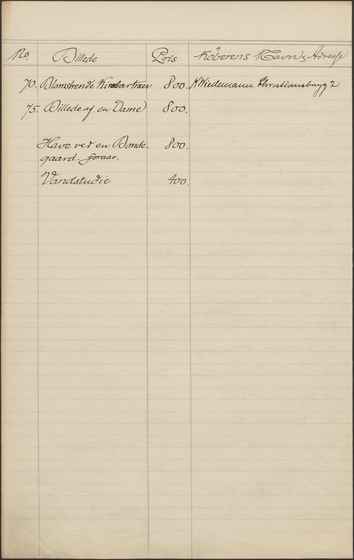 No Billede Pris Køberens Navn & Adresse
70. Blomstrende Kirsebærtræer 800. Wiedemann Christiansbrygg 2
75. Billede af en Dame 800.
Have ved en Bonde-
gaard. Foraar. 800.
Vandstudie 400.